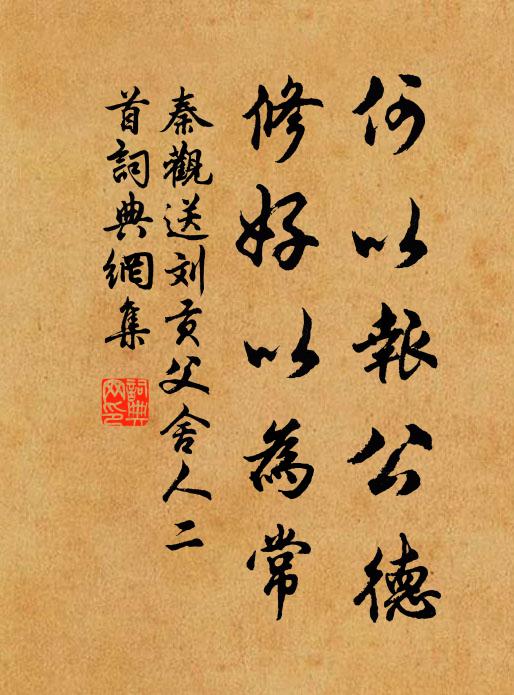 何以報公德
修好以為常
秦觀送刘貢父舍人二
首詞典網集
詞典
网印